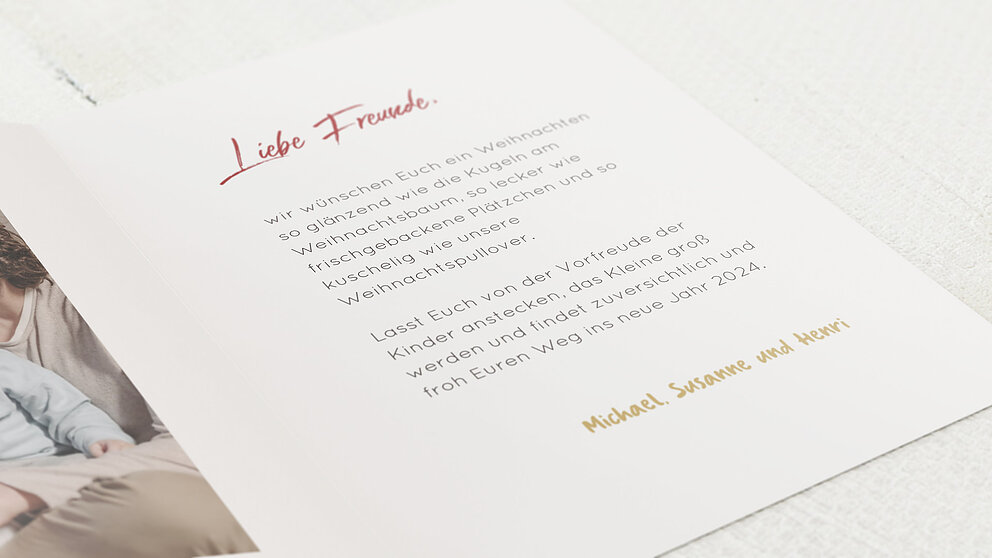 Liebe Freunde,
wir wünschen Euch ein Weihnachten
so glänzend wie die Kugeln am
Weihnachtsbaum, so lecker wie
frischgebackene Plätzchen und so
kuschelig wie unsere
Weihnachtspullover.
Lasst Euch von der Vorfreude der
Kinder anstecken, das Kleine groß
werden und findet zuversichtlich und
froh Euren Weg ins neue Jahr 2024.
Michael, Susanne und Henri